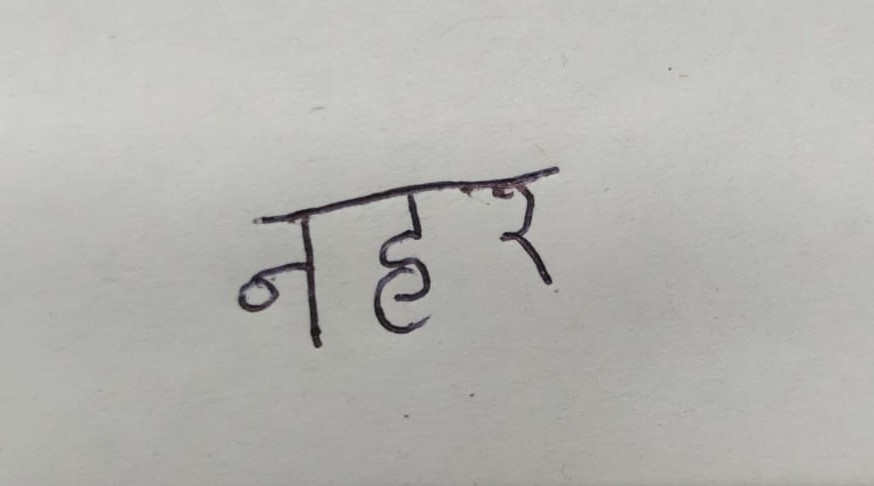 नहर